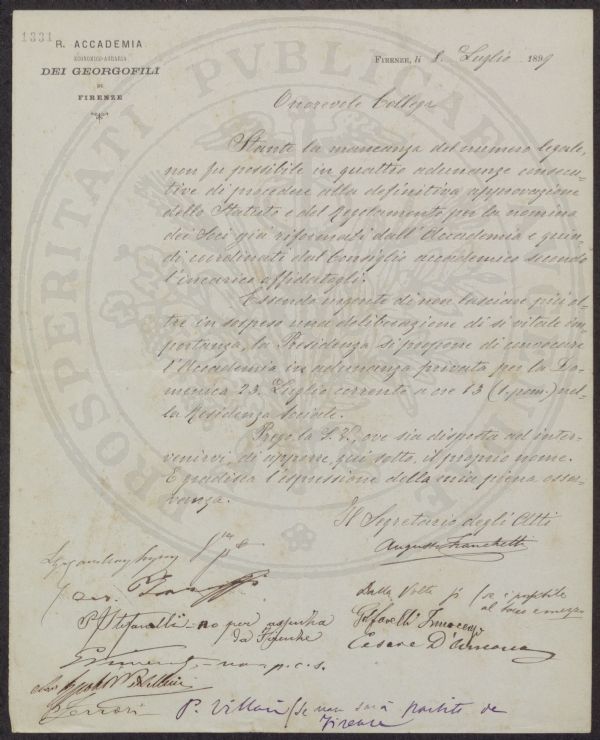 1331
R. ACCADEMIA
ECONOMICO-AGRARIA
DEI GEORGOFILI
DI
FIRENZE
FIRENZE, li 8. Luglio 1899
Onorevole Collega
Stante la mancanza del numero legale,
non fu possibile in quattro adunanze consecu-
tive di procedere alla definitiva approvazione
dello Statuto e del Regolamento per la nomina
dei Soci già riformati dall'Accademia e quin-
di coordinati dal Consiglio accademico secondo
l'incarico affidatogli.
Essendo urgente di non lasciare più ol-
tre in sospeso una deliberazione di sì vitale im-
portanza, la Presidenza si propone di convocare
l'Accademia in adunanza privata per la Do-
menica 23. Luglio corrente a ore 13 (1. pom.) nel-
la Residenza sociale.
Prego la S. V., ove sia disposta ad inter-
venirvi, di apporre, qui sotto, il proprio nome.
E gradisca l'espressione della mia piena osser-
vanza.
Il Segretario degli Atti
Augusto Franchetti
Dalla Volta sì (se è possibile
al tocco e mezzo
P. Stefanelli - no per assenza
da Firenze
Golfarelli Innocenzo
Cesare D'Ancona
no p. c. s.
P. Villari (Se non sarà partito da
Firenze
PROSPERITATI PVBLICAE